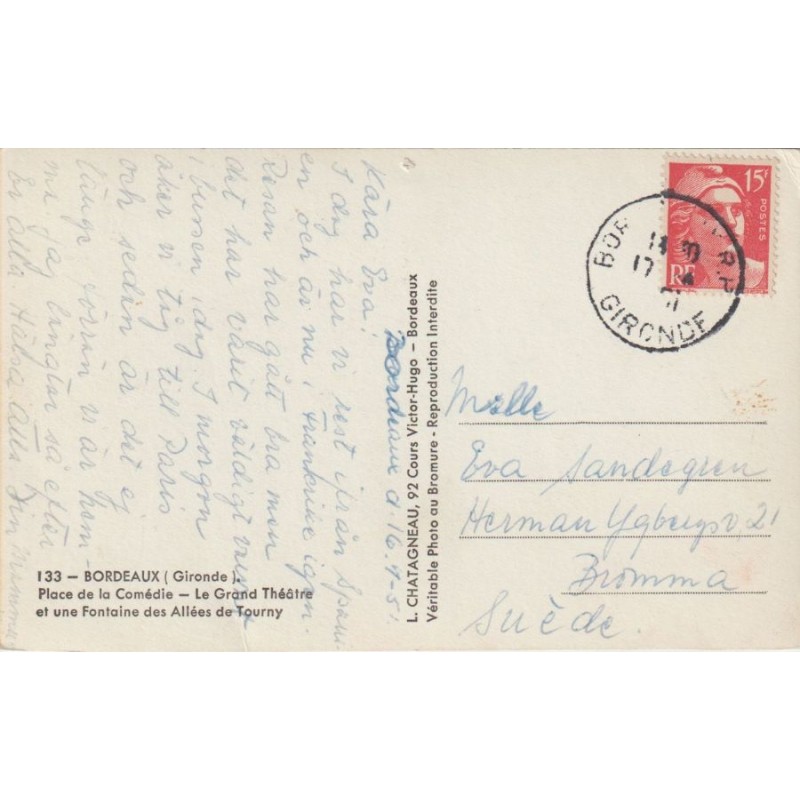 Bordeaux d. 16.4-51
Kära Eva!
I dag har vi rest ifrån Spani-
en och är nu i Frankrike igen.
Resan har gått bra men
det har varit väldigt varmt
i bussen i dag. I morgon
åker vi tåg till Paris
och sedan är det ej
länge förrän vi är hem-
ma. Jag längtar så efter
Er alla. Hälsa alla
Din Mamma
133 — BORDEAUX ( Gironde ).
Place de la Comédie — Le Grand Théâtre
et une Fontaine des Allées de Tourny
L. CHATAGNEAU, 92 Cours Victor-Hugo — Bordeaux
Véritable Photo au Bromure - Reproduction Interdite
15F
POSTES
RF
BOR R.P.
17
GIRONDE
Melle
Eva Sandegren
Herman Ygbergsv. 21
Bromma
Suède.